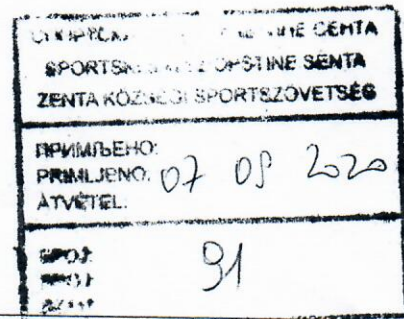 СЕНТА
SPORTSKI OPŠTINE SENTA
ZENTA KÖZSÉGI SPORTSZÖVETSÉG
ПРИМЉЕНО:
PRIMLJENO: 07 2020
ÁTVÉTEL:
БРОЈ:
BROJ: 91